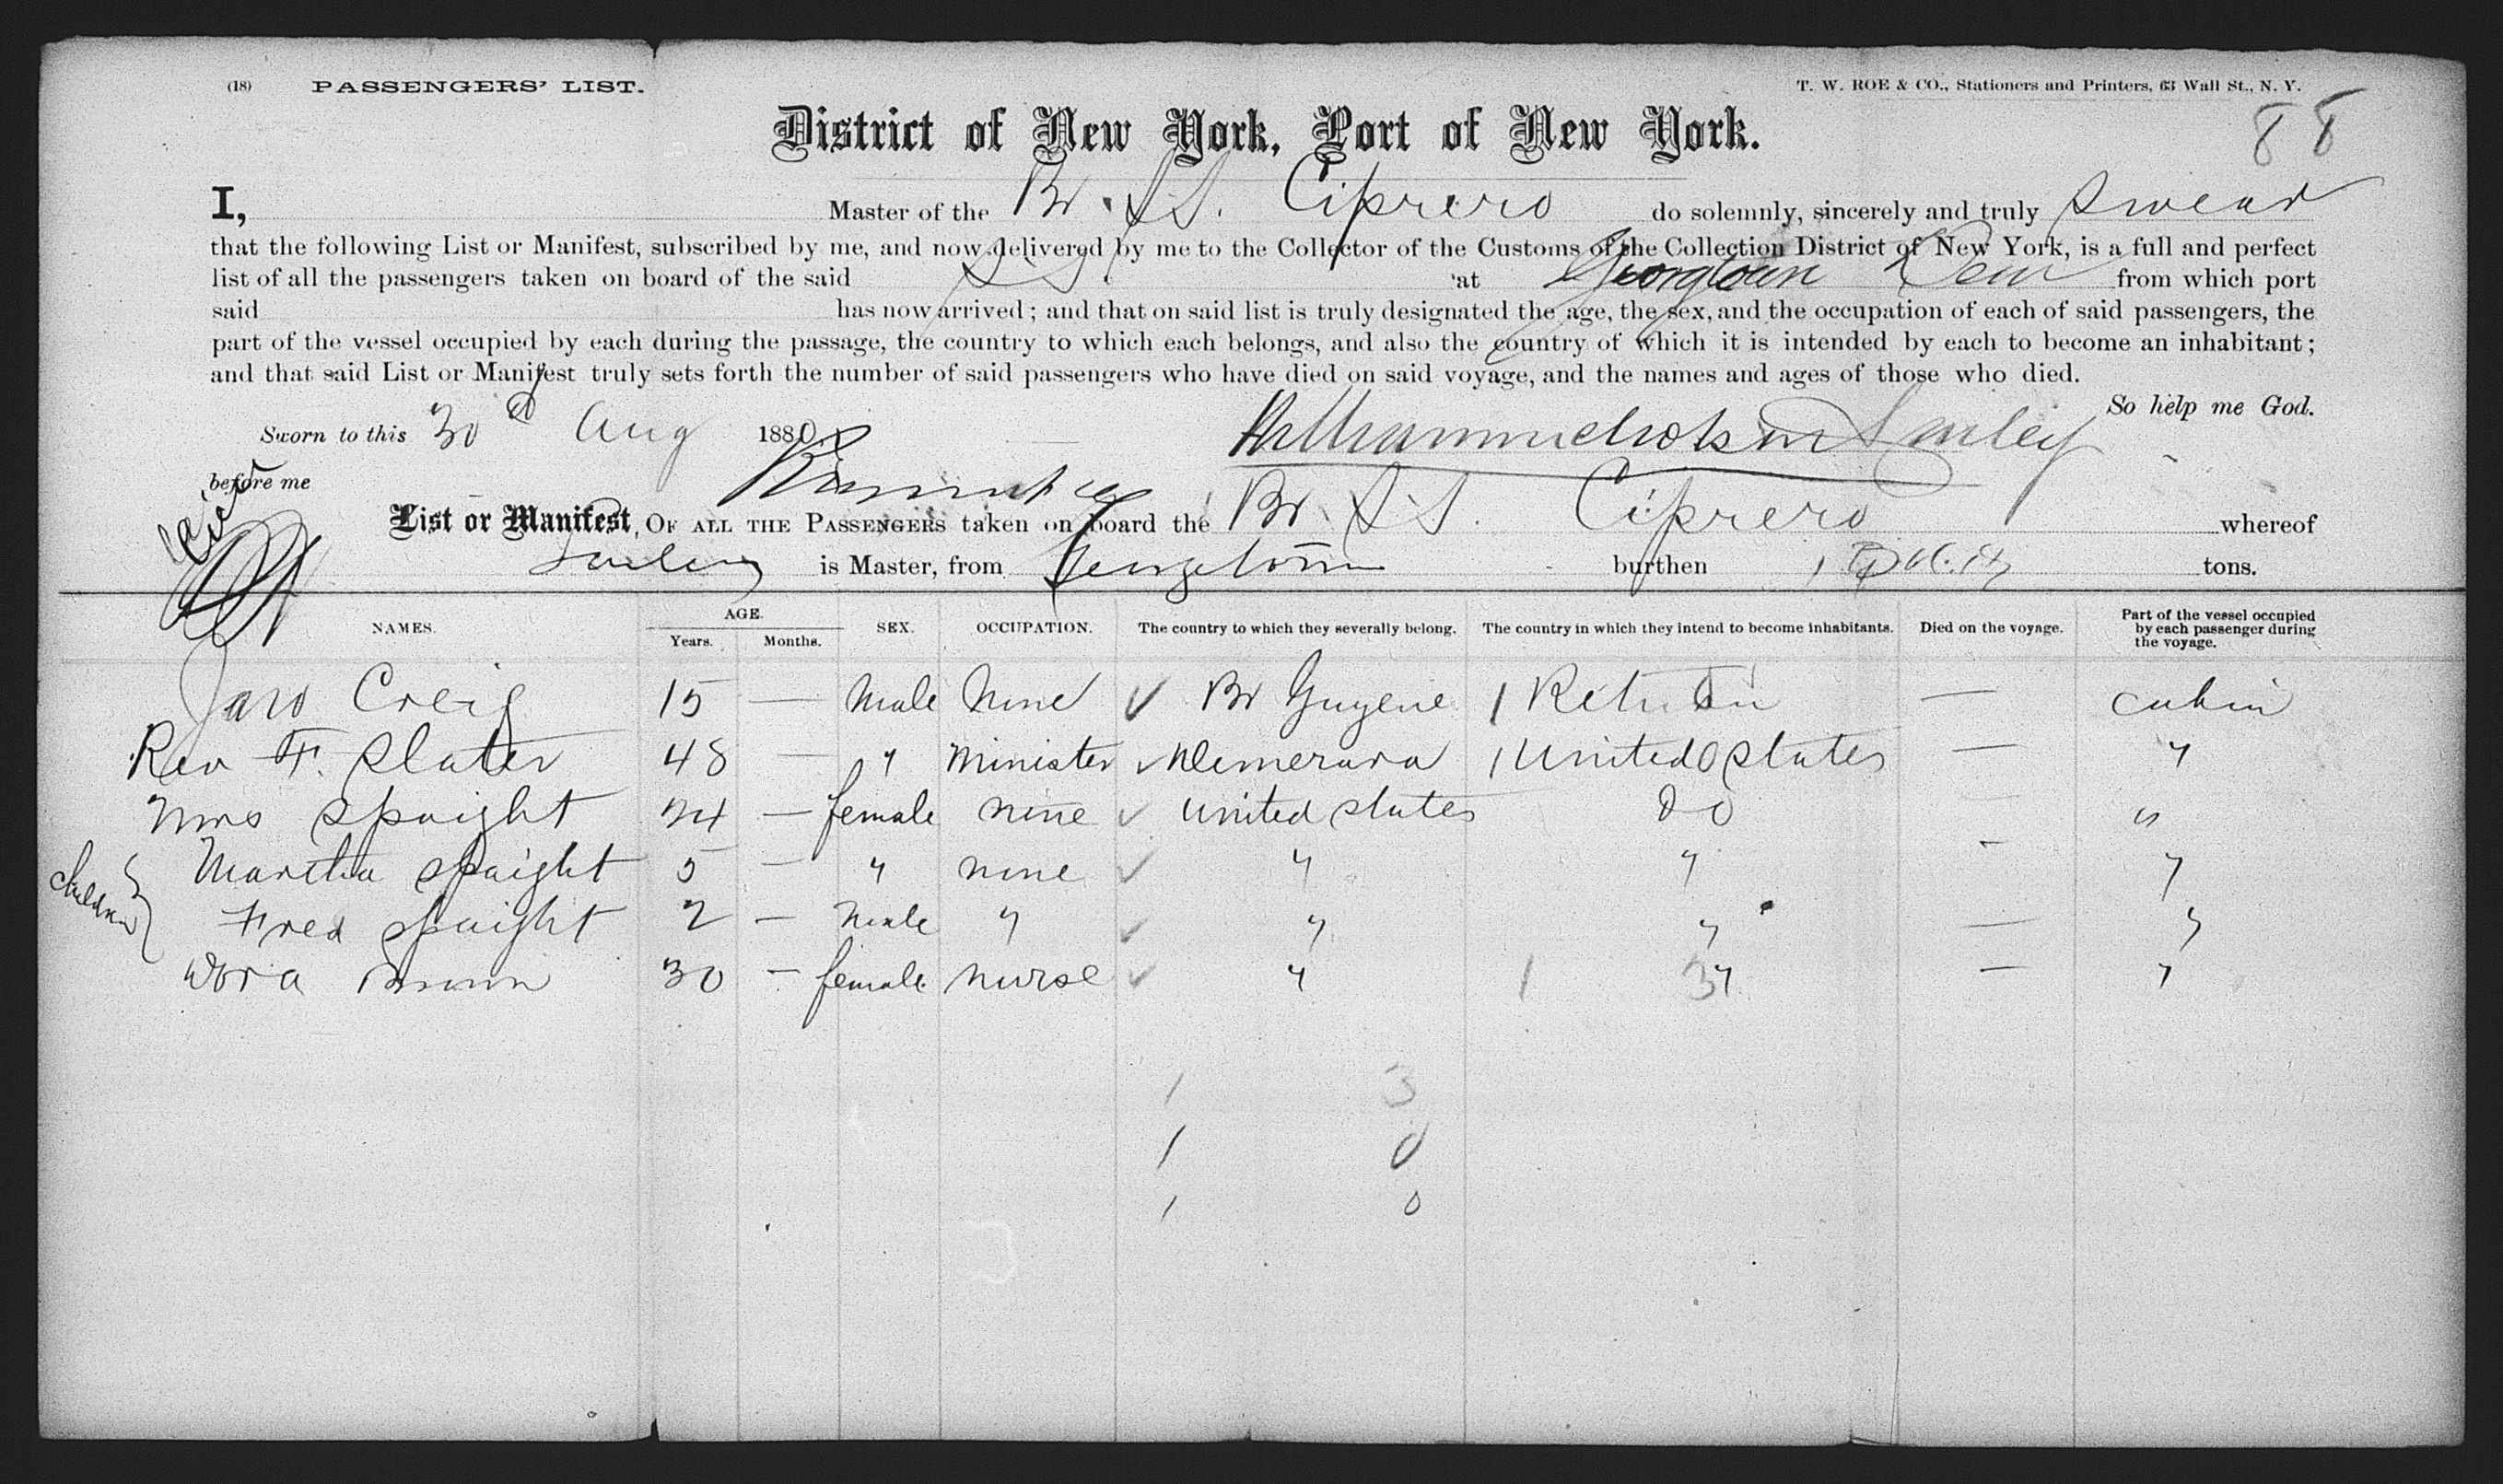 (18) PASSENGERS' LIST. T. W. ROE & CO., Stationers and Printers, 63 Wall St., N. Y.
88
District of New York, Port of New York.
I, Master of the Br. S.S. Ciprero do solemnly, sincerely and truly swear
that the following List or Manifest, subscribed by me, and now delivered by me to the Collector of the Customs of the Collection District of New York, is a full and perfect
list of all the passengers taken on board of the said S.S. at Georgtown Dem from which port
said has now arrived; and that on said list is truly designated the age, the sex, and the occupation of each of said passengers, the
part of the vessel occupied by each during the passage, the country to which each belongs, and also the country of which it is intended by each to become an inhabitant;
and that said List or Manifest truly sets forth the number of said passengers who have died on said voyage, and the names and ages of those who died.
So help me God.
Sworn to this 30 Aug 1880
before me
List or Manifest, OF ALL THE PASSENGERS taken on board the Br. S.S. Ciprero whereof
is Master, from Georgetown burthen tons.
NAMES. AGE. Years. Months. SEX. OCCUPATION. The country to which they severally belong. The country in which they intend to become inhabitants. Died on the voyage. Part of the vessel occupied by each passenger during the voyage.
Creig 15 — Male None ✓ Br Guyene 1 Return — cabin
Rev F. Slater 48 — " Minister ✓ Demerara 1 United States — "
Mrs Spaight 24 — female none ✓ United States Do — "
children
Martha Spaight 5 — " none ✓ " " — "
Fred Spaight 2 — Male " ✓ " " — "
Dora Brown 30 — female nurse ✓ " 1 3 " — "
1 3
1 0
1 0